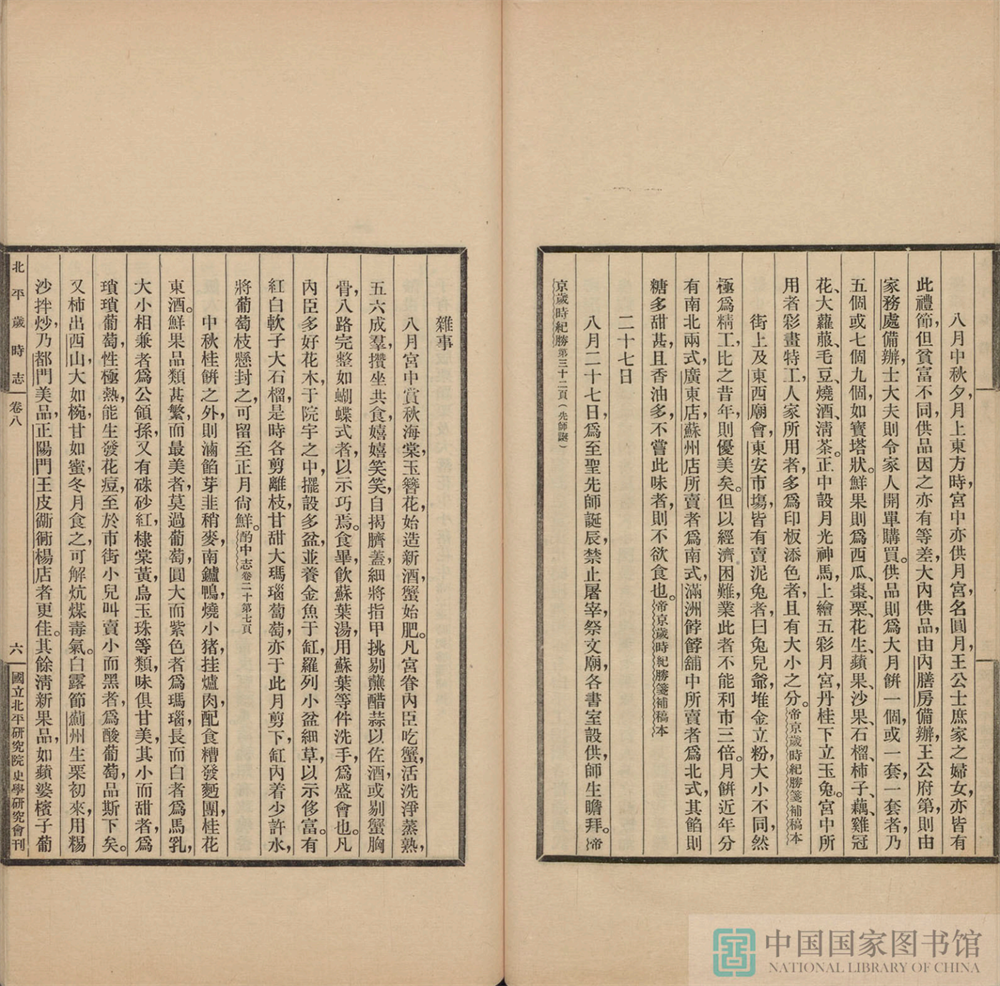 八月中秋夕，月上東方時，宮中亦供月宮，名圓月，王公士庶家之婦女亦皆有
此禮節，但貧富不同，供品因之亦有等差，大內供品，由內膳房備辦，王公府第，則由
家務處備辦，士大夫則令家人開單購買。供品則爲大月餅一個，或一套，一套者，乃
五個或七個九個，如寶塔狀。鮮果則爲西瓜、棗栗、花生、蘋果、沙果、石榴、柿子、藕、雞冠
花、大蘿菔、毛豆、燒酒、清茶。正中設月光神馬，上繪五彩月宮，丹桂下立玉兔，宮中所
用者，彩畫特工，人家所用者，多爲印板添色者，且有大小之分。帝京歲時紀勝箋補稿本
街上及東西廟會，東安市場，皆有賣泥兔者，曰兔兒爺，堆金立粉，大小不同，然
極爲精工，比之昔年，則優美矣。但以經濟困難，業此者不能利市三倍。月餅近年分
有南北兩式，廣東店蘇州店所賣者爲南式，滿洲餑餑舖中所賣者爲北式，其餡則
糖多甜甚，且香油多，不嘗此味者，則不欲食也。帝京歲時紀勝箋補稿本
二十七日
八月二十七日，爲至聖先師誕辰，禁止屠宰，祭文廟，各書室設供，師生瞻拜。帝
京歲時紀勝第三十二頁（先師誕）
雜事
八月宮中賞秋海棠玉簪花，始造新酒，蟹始肥。凡宮眷內臣吃蟹，活洗淨蒸熟，
五六成羣，攢坐共食，嬉嬉笑笑，自揭臍蓋，細將指甲挑剔，蘸醋蒜以佐酒，或剔蟹胸
骨，八路完整如蝴蝶式者，以示巧焉。食畢，飲蘇葉湯，用蘇葉等件洗手，爲盛會也。凡
內臣多好花木，于院宇之中，擺設多盆，並養金魚于缸，羅列小盆細草，以示侈富。有
紅白軟子大石榴，是時各剪離枝，甘甜大瑪瑙葡萄，亦于此月剪下，缸內着少許水，
將葡萄枝懸封之，可留至正月尙鮮。酌中志卷二十第七頁
中秋桂餅之外，則滷餡芽韭稍麥，南鑪鴨，燒小猪挂爐肉，配食糟發麪團，桂花
東酒。鮮果品類甚繁，而最美者莫過葡萄，圓大而紫色者爲瑪瑙，長而白者爲馬乳，
大小相兼者爲公領孫，又有硃砂紅，棣棠黃，烏玉珠等類，味俱甘美，其小而甜者，爲
瑣瑣葡萄，性極熱，能生發花痘，至於市街小兒叫賣，小而黑者，爲酸葡萄，品斯下矣。
又柿出西山，大如椀，甘如蜜，冬月食之，可解炕煤毒氣。白露節薊州生栗初來，用糖
沙拌炒，乃都門美品，正陽門王皮衚衕楊店者更佳。其餘清新果品，如蘋婆檳子葡
北平歲時志
卷八
六
國立北平研究院史學研究會刊
中国国家图书馆
NATIONAL LIBRARY OF CHINA